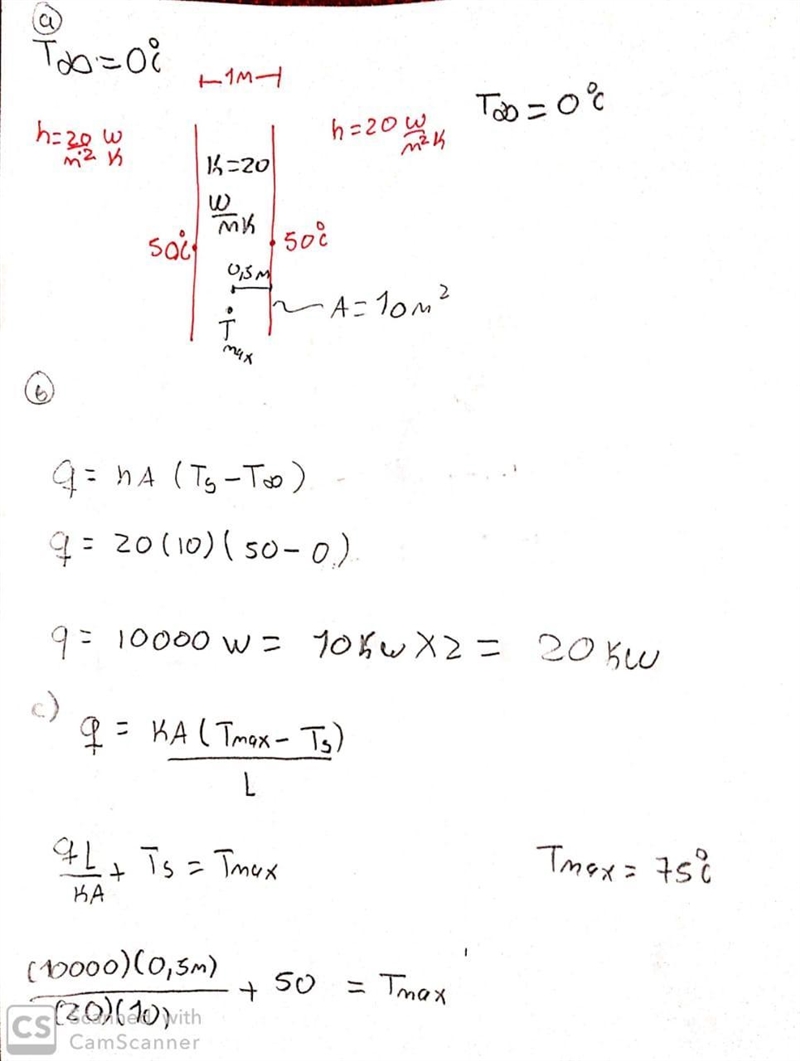 a
T∞=0°c
⊢1M⊣
T∞=0°c
h=20 W/m² K
h=20 W/m²K
K=20
W/MK
50°c
50°c
0,5M
A=10M²
Ṫ
max
b
q= hA (Ts-T∞)
q= 20(10)(50-0)
q= 10000 W= 10KW X2= 20KW
c)
q= KA(Tmax-Ts)
L
qL/KA + Ts = Tmax
Tmax= 75°c
(10000)(0,5M)/(20)(10) + 50 = Tmax
CS Scanned with
CamScanner